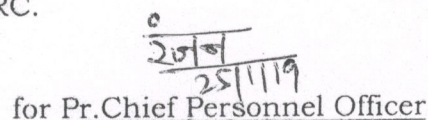 RC.
25/11/19
for Pr.Chief Personnel Officer